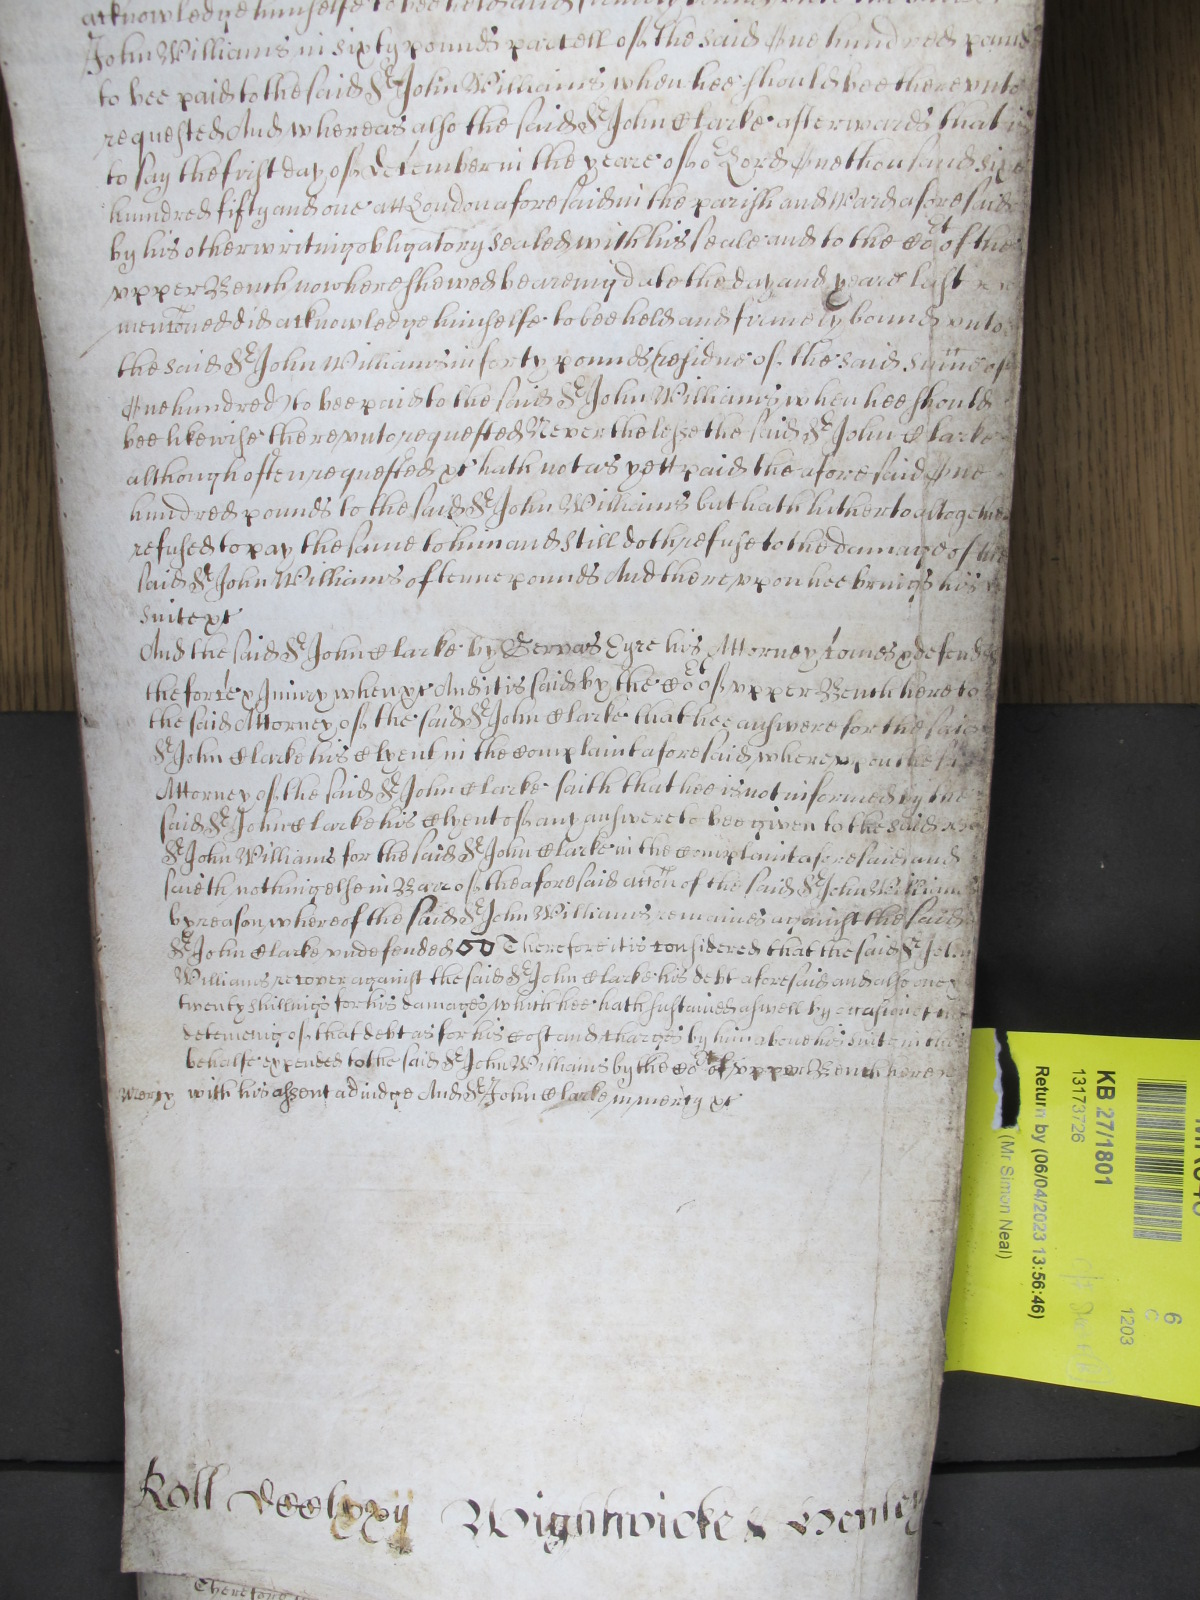 acknowledge himselfe to bee held and firmely bound unto the
John Williams in sixty pounds parcell of the said One hundred pounds
to bee paid to the said Sr John Williams when hee should bee thereunto
requested And whereas also the said Sr John Clarke afterwards that is
to say the first day of December in the yeare of or Lord One thousand sixe
hundred fifty and one att London aforesaid in the parish and Ward aforesaid
by his other writing obligatory sealed with his seale and to the Cort of the
upper Bench now here shewed beareing date the day and yeare last
mencioned did acknowledge himselfe to bee held and firmely bound unto
the said Sr John Williams in forty pounds residue of the said sume of
One hundred to bee paid to the said Sr John Williams when hee should
bee likewise thereunto requested Neverthelesse the said Sr John Clarke
although often requested &c hath not as yett paid the aforesaid One
hundred pounds to the said Sr John Williams but hath hitherto altogether
refused to pay the same to him and still doth refuse to the damage of the
said Sr John Williams of tenne pounds And thereupon hee brings his
suite &c
And the said Sr John Clarke by Gervas Eyre his Attorney comes & defends
the force & Iniury when &c And it is said by the Cort of upper Bench here to
the said Attorney of the said Sr John Clarke that hee answere for the said
Sr John Clarke his Clyent in the Complaint aforesaid whereupon the said
Attorney of the said Sr John Clarke saith that hee is not informed by the
said Sr John Clarke his Clyent of any answere to bee given to the said
Sr John Williams for the said Sr John Clarke in the Complaint aforesaid and
saieth nothing else in Barr of the aforesaid accon of the said Sr John Williams
by reason whereof the said Sr John Williams remaines against the said
Sr John Clarke undefended Therefore it is considered that the said Sr John
Williams recover against the said Sr John Clarke his debt aforesaid and also one &
twenty shillings for his damages which hee hath sustained aswell by occasion of the
deteineing of that debt as for his Cost and Charges by him about his suite in this
behalfe expended to the said Sr John Williams by the Cort of upper Bench here
Mercy with his assent adiudge And Sr John Clarke in mercy &c
Roll Wightwicke & Henley
Therefore
KB 27/1801
13173726
Return by (06/04/2023 13:56:46)
(Mr Simon Neal)
6
C
1203